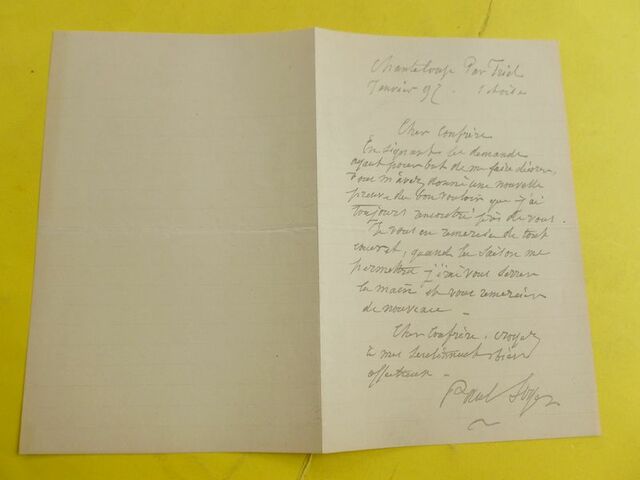 Chanteloup Par Triel
Janvier 97. S et Oise
Cher Confrère
En signant la demande
ayant pour but de me faire décorer,
vous m'avez donné une nouvelle
preuve du bon vouloir que j'ai
toujours rencontré près de vous.
Je vous en remercie de tout
coeur, quand la saison me
permettra j'irai vous serrer
la main et vous remercier
de nouveau -
Cher Confrère, croyez
à mes sentiments bien
affectueux -
Paul